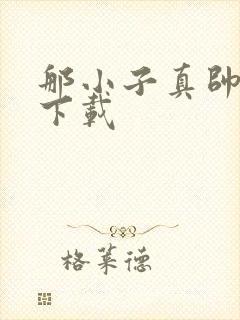 那小子真帥
下載
格萊德